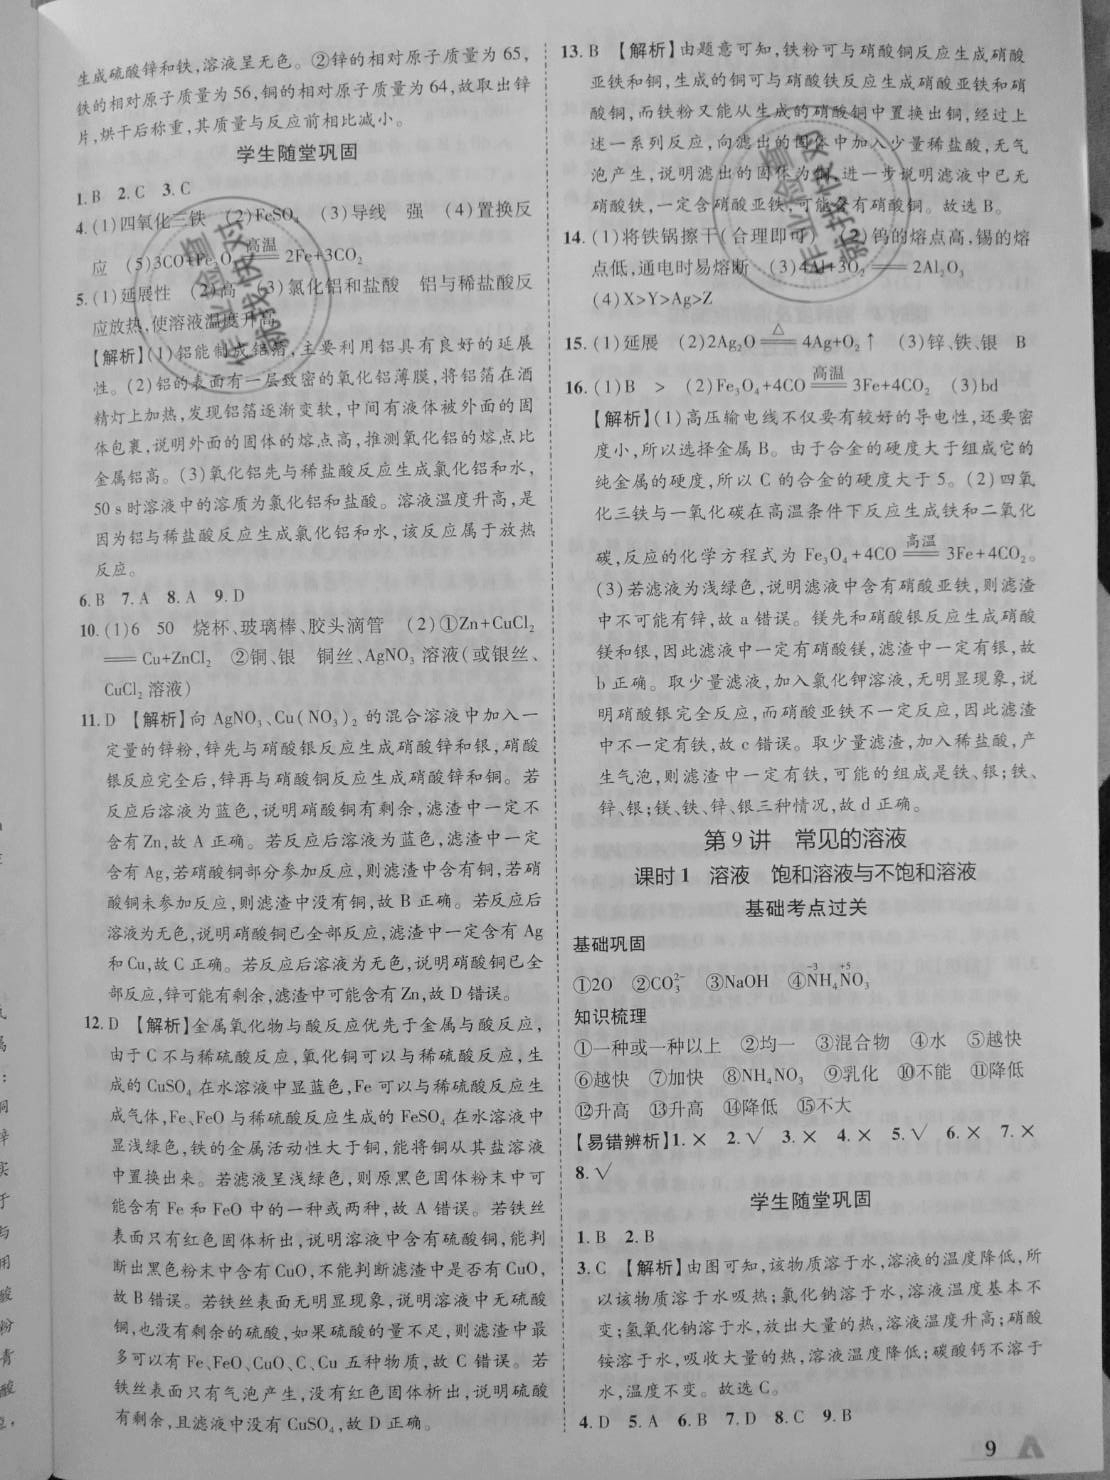 生成硫酸锌和铁,溶液呈无色。②锌的相对原子质量为65,
铁的相对原子质量为56,铜的相对原子质量为64,故取出锌
片,烘干后称重,其质量与反应前相比减小。
学生随堂巩固
1. B 2. C 3. C
4. (1)四氧化三铁 (2)FeSO₄ (3)导线 强 (4)置换反
应 (5)3CO+Fe₂O₃ 高温 2Fe+3CO₂
5. (1)延展性 (2)高 (3)氯化铝和盐酸 铝与稀盐酸反
应放热,使溶液温度升高
【解析】(1)铝能制成铝箔,主要利用铝具有良好的延展
性。(2)铝的表面有一层致密的氧化铝薄膜,将铝箔在酒
精灯上加热,发现铝箔逐渐变软,中间有液体被外面的固
体包裹,说明外面的固体的熔点高,推测氧化铝的熔点比
金属铝高。(3)氧化铝先与稀盐酸反应生成氯化铝和水,
50 s时溶液中的溶质为氯化铝和盐酸。溶液温度升高,是
因为铝与稀盐酸反应生成氯化铝和水,该反应属于放热
反应。
6. B 7. A 8. A 9. D
10. (1)6 50 烧杯、玻璃棒、胶头滴管 (2)①Zn+CuCl₂
══ Cu+ZnCl₂ ②铜、银 铜丝、AgNO₃ 溶液(或银丝、
CuCl₂ 溶液)
11. D 【解析】向 AgNO₃、Cu(NO₃)₂ 的混合溶液中加入一
定量的锌粉,锌先与硝酸银反应生成硝酸锌和银,硝酸
银反应完全后,锌再与硝酸铜反应生成硝酸锌和铜。若
反应后溶液为蓝色,说明硝酸铜有剩余,滤渣中一定不
含有Zn,故 A 正确。若反应后溶液为蓝色,滤渣中一定
含有 Ag,若硝酸铜部分参加反应,则滤渣中含有铜,若硝
酸铜未参加反应,则滤渣中没有铜,故 B 正确。若反应后
溶液为无色,说明硝酸铜已全部反应,滤渣中一定含有 Ag
和 Cu,故 C 正确。若反应后溶液为无色,说明硝酸铜已全
部反应,锌可能有剩余,滤渣中可能含有 Zn,故 D 错误。
12. D 【解析】金属氧化物与酸反应优先于金属与酸反应,
由于 C 不与稀硫酸反应,氧化铜可以与稀硫酸反应,生
成的 CuSO₄ 在水溶液中显蓝色,Fe 可以与稀硫酸反应生
成气体,Fe、FeO 与稀硫酸反应生成的 FeSO₄ 在水溶液中
显浅绿色,铁的金属活动性大于铜,能将铜从其盐溶液
中置换出来。若滤液呈浅绿色,则原黑色固体粉末中可
能含有 Fe 和 FeO 中的一种或两种,故 A 错误。若铁丝
表面只有红色固体析出,说明溶液中含有硫酸铜,能判
断出黑色粉末中含有 CuO,不能判断滤渣中是否有 CuO,
故 B 错误。若铁丝表面无明显现象,说明溶液中无硫酸
铜,也没有剩余的硫酸,如果硫酸的量不足,则滤渣中最
多可以有 Fe、FeO、CuO、C、Cu 五种物质,故 C 错误。若
铁丝表面只有气泡产生,没有红色固体析出,说明硫酸
有剩余,且滤液中没有 CuSO₄,故 D 正确。
13. B 【解析】由题意可知,铁粉可与硝酸铜反应生成硝酸
亚铁和铜,生成的铜可与硝酸铁反应生成硝酸亚铁和硝
酸铜,而铁粉又能从生成的硝酸铜中置换出铜,经过上
述一系列反应,向滤出的固体中加入少量稀盐酸,无气
泡产生,说明滤出的固体为铜,进一步说明滤液中已无
硝酸铁,一定含硝酸亚铁,可能含有硝酸铜。故选 B。
14. (1)将铁锅擦干(合理即可) (2)钨的熔点高,锡的熔
点低,通电时易熔断 (3)4Al+3O₂ ══ 2Al₂O₃
(4)X>Y>Ag>Z
15. (1)延展 (2)2Ag₂O △ 4Ag+O₂↑ (3)锌、铁、银 B
16. (1)B > (2)Fe₃O₄+4CO 高温 3Fe+4CO₂ (3)bd
【解析】(1)高压输电线不仅要有较好的导电性,还要密
度小,所以选择金属 B。由于合金的硬度大于组成它的
纯金属的硬度,所以 C 的合金的硬度大于 5。(2)四氧
化三铁与一氧化碳在高温条件下反应生成铁和二氧化
碳,反应的化学方程式为 Fe₃O₄+4CO 高温 3Fe+4CO₂。
(3)若滤液为浅绿色,说明滤液中含有硝酸亚铁,则滤渣
中不可能有锌,故 a 错误。镁先和硝酸银反应生成硝酸
镁和银,因此滤液中一定有硝酸镁,滤渣中一定有银,故
b 正确。取少量滤液,加入氯化钾溶液,无明显现象,说
明硝酸银完全反应,而硝酸亚铁不一定反应,因此滤渣
中不一定有铁,故 c 错误。取少量滤渣,加入稀盐酸,产
生气泡,则滤渣中一定有铁,可能的组成是铁、银;铁、
锌、银;镁、铁、锌、银三种情况,故 d 正确。
第 9 讲 常见的溶液
课时 1 溶液 饱和溶液与不饱和溶液
基础考点过关
基础巩固
①2O ②CO₃²⁻ ③NaOH ④N⁻³H₄N⁺⁵O₃
知识梳理
①一种或一种以上 ②均一 ③混合物 ④水 ⑤越快
⑥越快 ⑦加快 ⑧NH₄NO₃ ⑨乳化 ⑩不能 ⑪降低
⑫升高 ⑬升高 ⑭降低 ⑮不大
【易错辨析】1. × 2. √ 3. × 4. × 5. √ 6. × 7. ×
8. √
学生随堂巩固
1. B 2. B
3. C 【解析】由图可知,该物质溶于水,溶液的温度降低,所
以该物质溶于水吸热;氯化钠溶于水,溶液温度基本不
变;氢氧化钠溶于水,放出大量的热,溶液温度升高;硝酸
铵溶于水,吸收大量的热,溶液温度降低;碳酸钙不溶于
水,温度不变。故选 C。
4. D 5. A 6. B 7. D 8. C 9. B
9